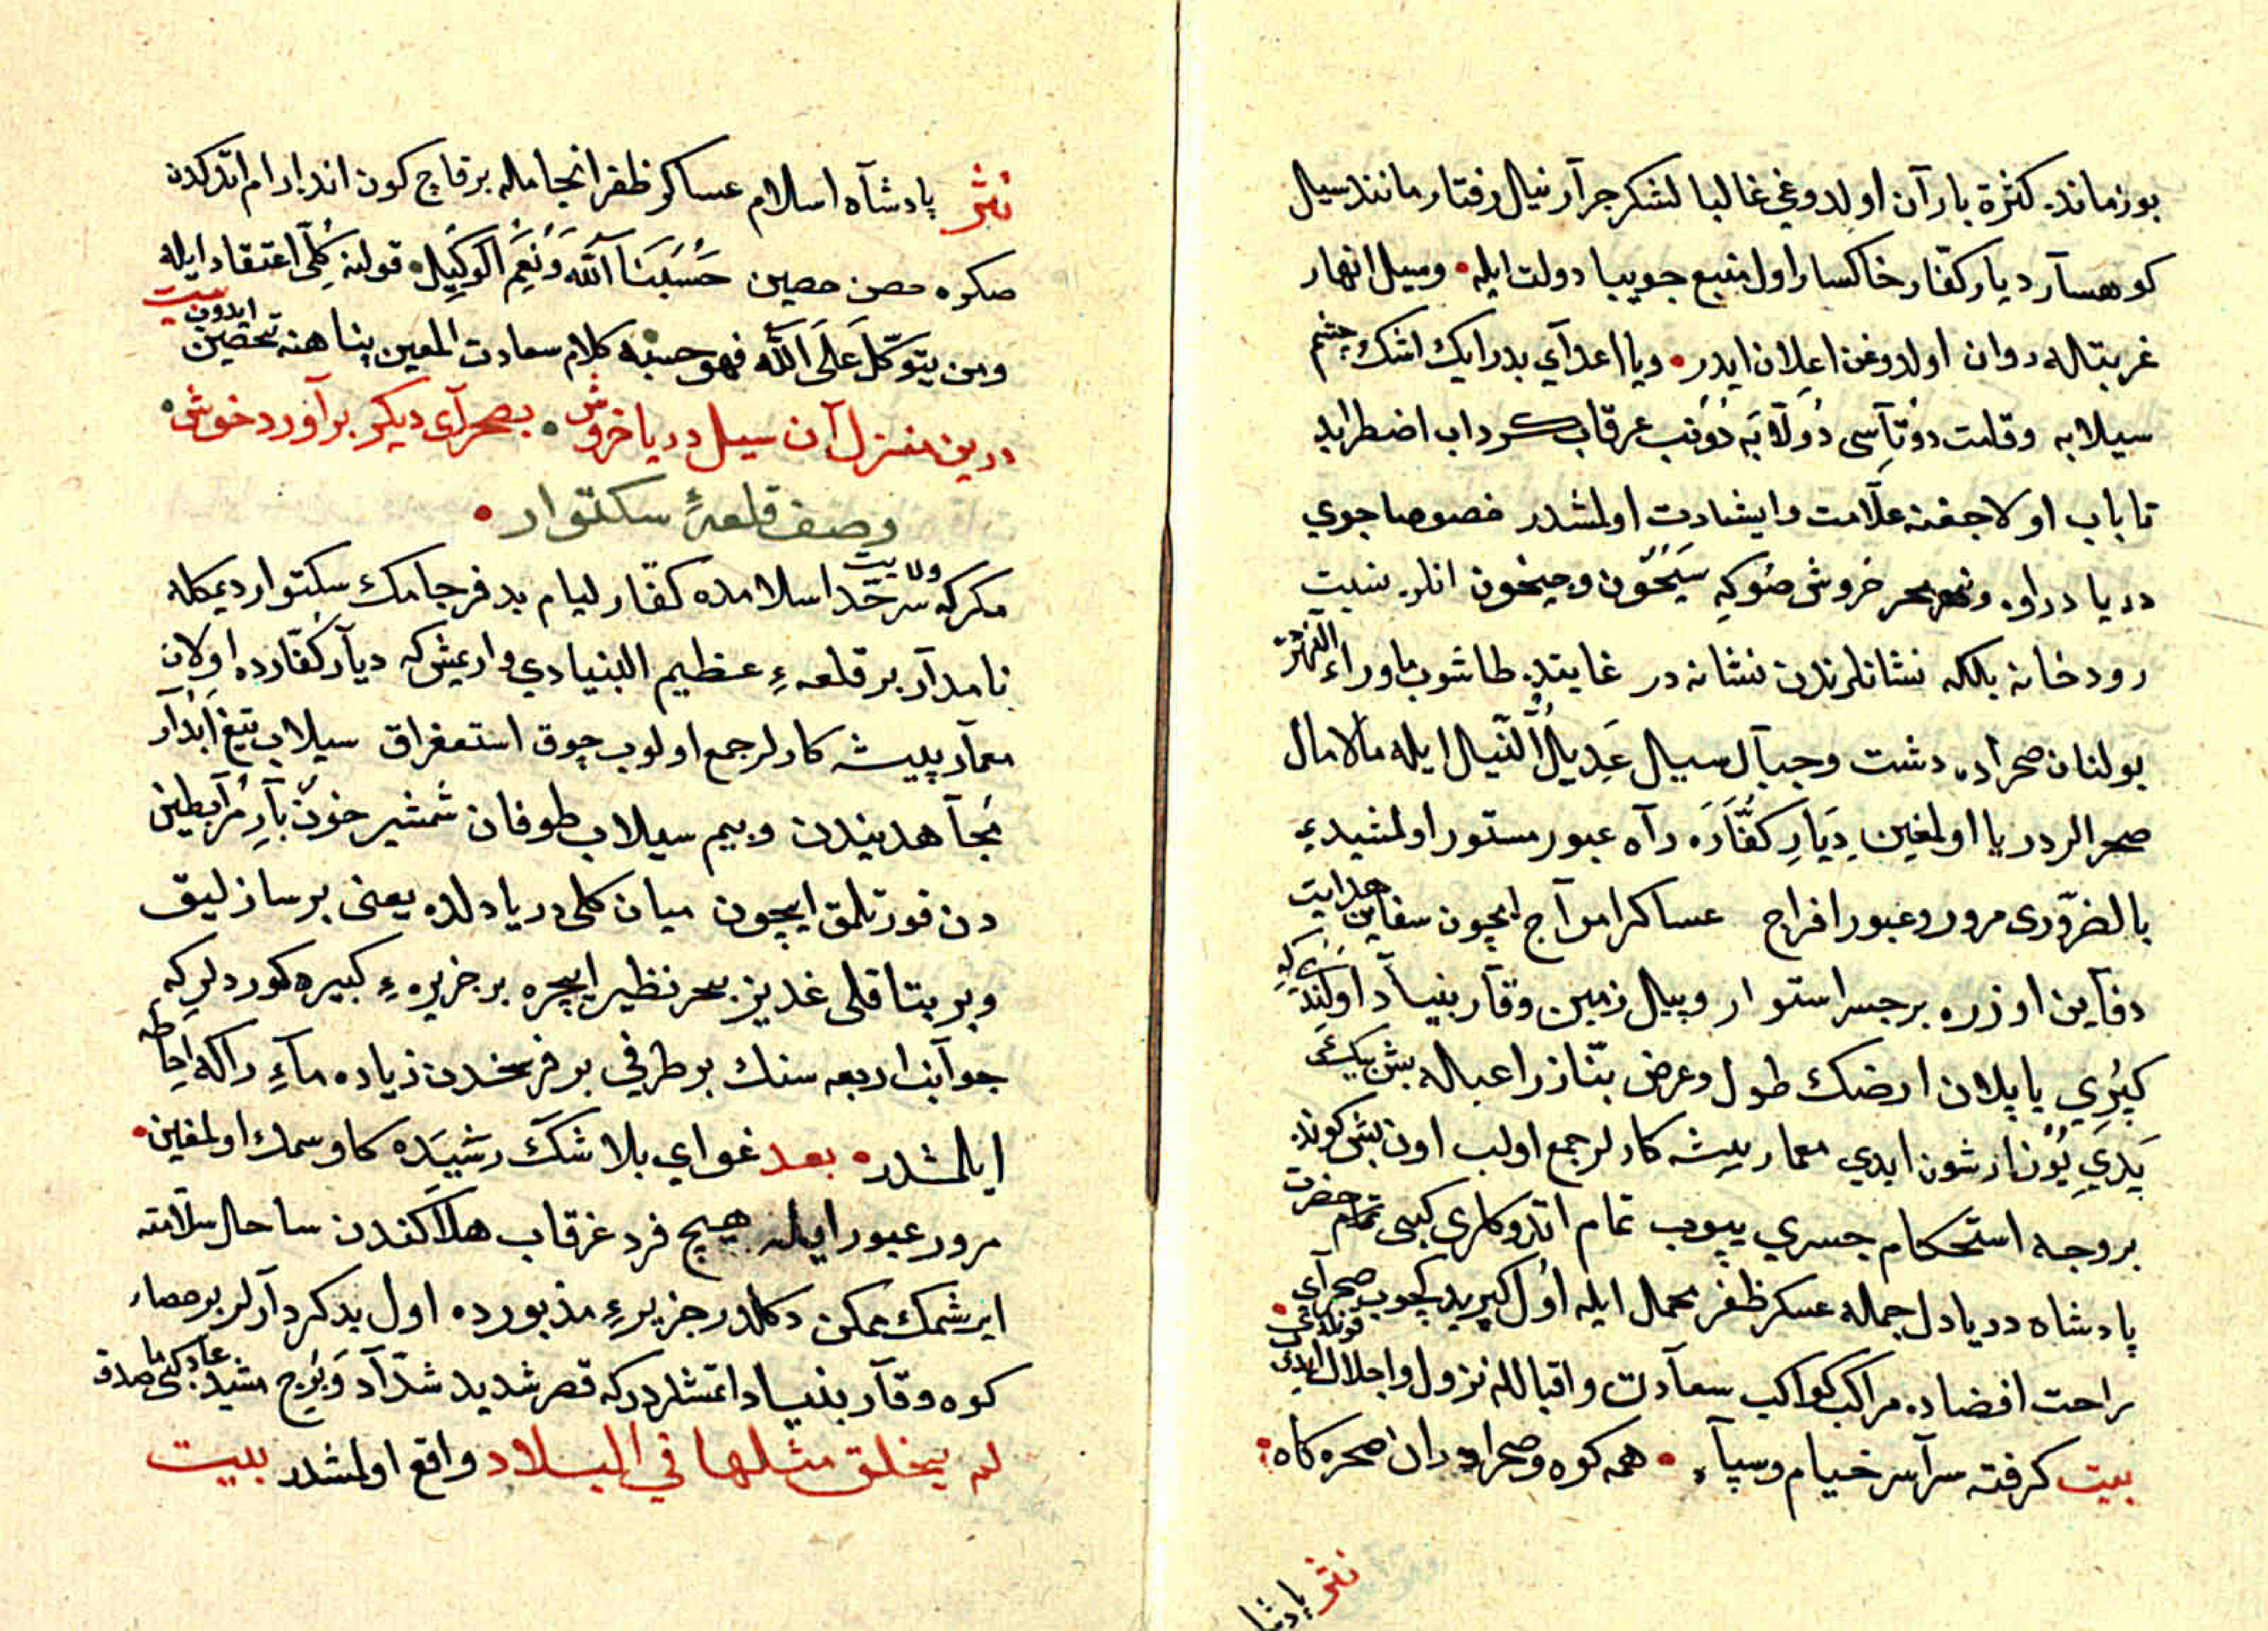 بوزماندہ كثرة باران اولدوغی غالبا لشكر جرآر نیال رفتار مانند سیال
كوهسآر دیار كفّار خاكسار اول منبع جویبا دولت ایله • وسیل انهار
غربتاله روان اولدوغن اعلان ایدر • ویا اعدآی بدرایك اشك چشم
سیلابه وقامت دوتآسی دولآبه دونب غرقاب كرداب اضطرابد
تا باب اولاجغنه علآمت واشادت اولمشدر خصوصا جوی
دریا دراوه ونهر بحر خروش صوكه سیحون وجیحون انلره نسبت
رودخانه بلكه نشانلرندن نشانه در غایتده طاشوب ماوراء النهر
بولنان صحراده دشت وجبآل سیال عدیال النیال ایله مالامال
صحرالر دریا اولمغین دیار كفّاره رآه عبور مستور اولمشیدی
بالضرّوری مرور وعبور افراج عساكر امواج ایچون سفاین هدایت
دفاین اوزره بر جسر استوار وپیل زمین وقآر بنیآد اولندی كه
كپری یاپلان ارضك طول وعرض بتنازراعباله بش بیك
یدی یوز ارشون ایدی معمار پیشه كارلر جمع اولب اون بش كونده
بروجه استحكام جسری یپوب تمام اتدوكلری كبی تمام حضرت
پادشاه دریادل جمله عسكر ظفر محمال ایله اول كپریدن كچوب صحرآی
راحت افضاده مراكب كواكب سعآدت واقبالله نزول واجلال ایدی
بیت كرفته سرآسر خیام وسپآه • همه كوه وصحرا ودران صحره كاه
نثر پادشا
نثر پادشآه اسلام عساكر ظفر انجامله بر قاچ كون انده ارام اتدكدن
صكره حصن حصین حَسْبُنَا اللّٰه وَنِعْمَ الْوَكِیل • قولنه كُلّی اعتقاد ایله
ومن یتوكّل عَلَی اللّٰه فهو حسبه كلام سعادت المعین پناهنه تحصین ایدوب بیت
درین منزل آن سیل دریا خروش • بصحرآی دیكر برآورد خوش •
وصف قلعهٔ سكتوار •
مكركه سرحدّ ولایت اسلامده كفّار لیام بد فرجامك سكتوار دیمكله
نامدآر بر قلعهٔ عظیم البنیادی وارمیش كه دیآر كفّارده اولان
معمآر پیشه كارلر جمع اولوب چوق استغراق سیلاب تیغ آبدآر
مجآهدیندن وبیم سیلاب طوفان شمشیر خون بآر مرآبطین
دن قورتلمق ایچون میان كلی دریادلده یعنی بر سازلیق
وبر بتاقلی غدیر بحر نظیر ایچره بر جزیرهٔ كبیره كوردلر كه
جوآنب اربعه سنك بر طرفی بر فرسخدن زیاده مآءِ راكد احاطه
ایلمشدر • بعد غوای بلا شك رشیده كاوسمك اولمغین •
مرور عبور ایله هیچ فرد غرقاب هلاكندن ساحل سلآمته
ایرشمك ممكن دكلدر جزیرهٔ مذبورده اول بد كردآرلر بر حصار
كوه وقآر بنیاد اتمشلردركه قصر شدید شدّآد وَبُرج مشید عاد كبی ما صدق
لم یخلق مثلها فی البلاد واقع اولمشدر بیت